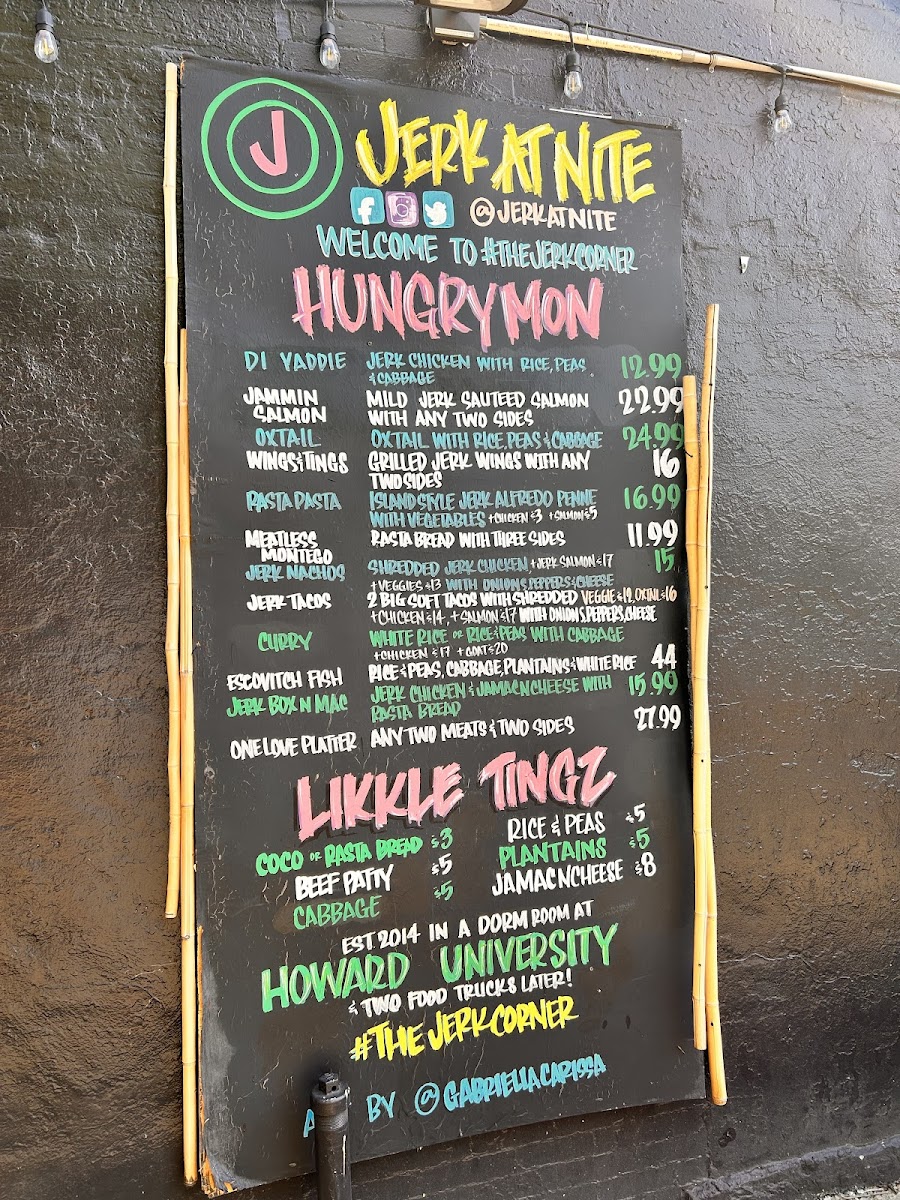 J
JERK AT NITE
@JERKATNITE
WELCOME TO #THEJERKCORNER
HUNGRY MON
DI YADDIE JERK CHICKEN WITH RICE, PEAS 12.99
& CABBAGE
JAMMIN MILD JERK SAUTEED SALMON 22.99
SALMON WITH ANY TWO SIDES
OXTAIL OXTAIL WITH RICE, PEAS & CABBAGE 24.99
WINGS & TINGS GRILLED JERK WINGS WITH ANY 16
TWO SIDES
RASTA PASTA ISLAND STYLE JERK ALFREDO PENNE 16.99
WITH VEGETABLES +CHICKEN $3 +SALMON $5
MEATLESS RASTA BREAD WITH THREE SIDES 11.99
MONTEGO
JERK NACHOS SHREDDED JERK CHICKEN +JERK SALMON $17 15
+VEGGIES $13 WITH ONIONS, PEPPERS & CHEESE
JERK TACOS 2 BIG SOFT TACOS WITH SHREDDED VEGGIE $12, OXTAIL $16
+CHICKEN $14, +SALMON $17 WITH ONIONS, PEPPERS, CHEESE
CURRY WHITE RICE OR RICE & PEAS WITH CABBAGE
+CHICKEN $17 +GOAT $20
ESCOVITCH FISH RICE & PEAS, CABBAGE, PLANTAINS & WHITE RICE 44
JERK BOX N MAC JERK CHICKEN & JAMACNCHEESE WITH 15.99
RASTA BREAD
ONE LOVE PLATTER ANY TWO MEATS & TWO SIDES 27.99
LIKKLE TINGZ
COCO OR RASTA BREAD $3
BEEF PATTY $5
CABBAGE $5
RICE & PEAS $5
PLANTAINS $5
JAMACNCHEESE $8
EST 2014 IN A DORM ROOM AT
HOWARD UNIVERSITY
& TWO FOOD TRUCKS LATER!
#THEJERKCORNER
BY @GABRIELLACARISSA